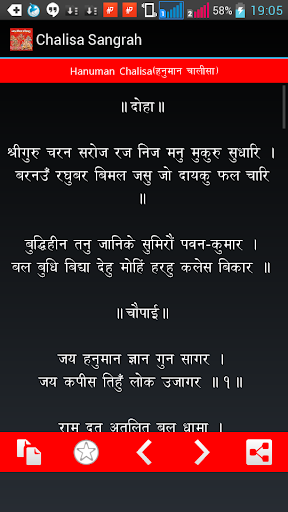 58% 19:05
Chalisa Sangrah
Hanuman Chalisa(हनुमान चालीसा)
॥ दोहा ॥
श्रीगुरु चरन सरोज रज निज मनु मुकुरु सुधारि ।
बरनउँ रघुबर बिमल जसु जो दायकु फल चारि
॥
बुद्धिहीन तनु जानिके सुमिरौं पवन-कुमार ।
बल बुधि बिद्या देहु मोहिं हरहु कलेस बिकार ॥
॥ चौपाई ॥
जय हनुमान ज्ञान गुन सागर ।
जय कपीस तिहुँ लोक उजागर ॥ १ ॥
राम दूत अतुलित बल धामा ।